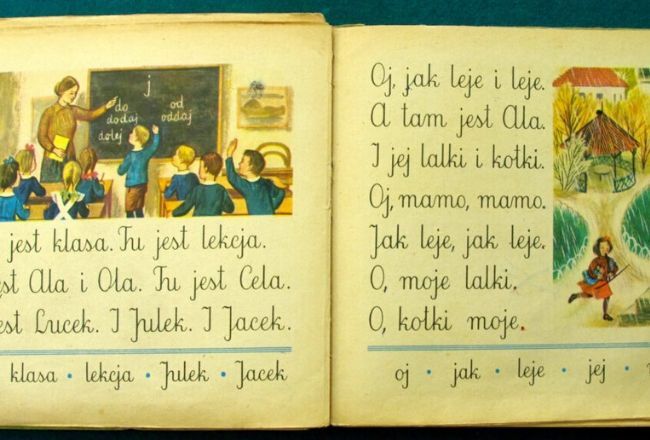 j
do od
dodaj oddaj
dolej
jest klasa. Tu jest lekcja.
Ala i Ola. Tu jest Cela.
Lucek. I Julek. I Jacek.
klasa • lekcja • Julek • Jacek
Oj, jak leje i leje.
A tam jest Ala.
I jej lalki i kotki.
Oj, mamo, mamo.
Jak leje, jak leje.
O, moje lalki.
O, kotki moje.
oj • jak • leje • jej •